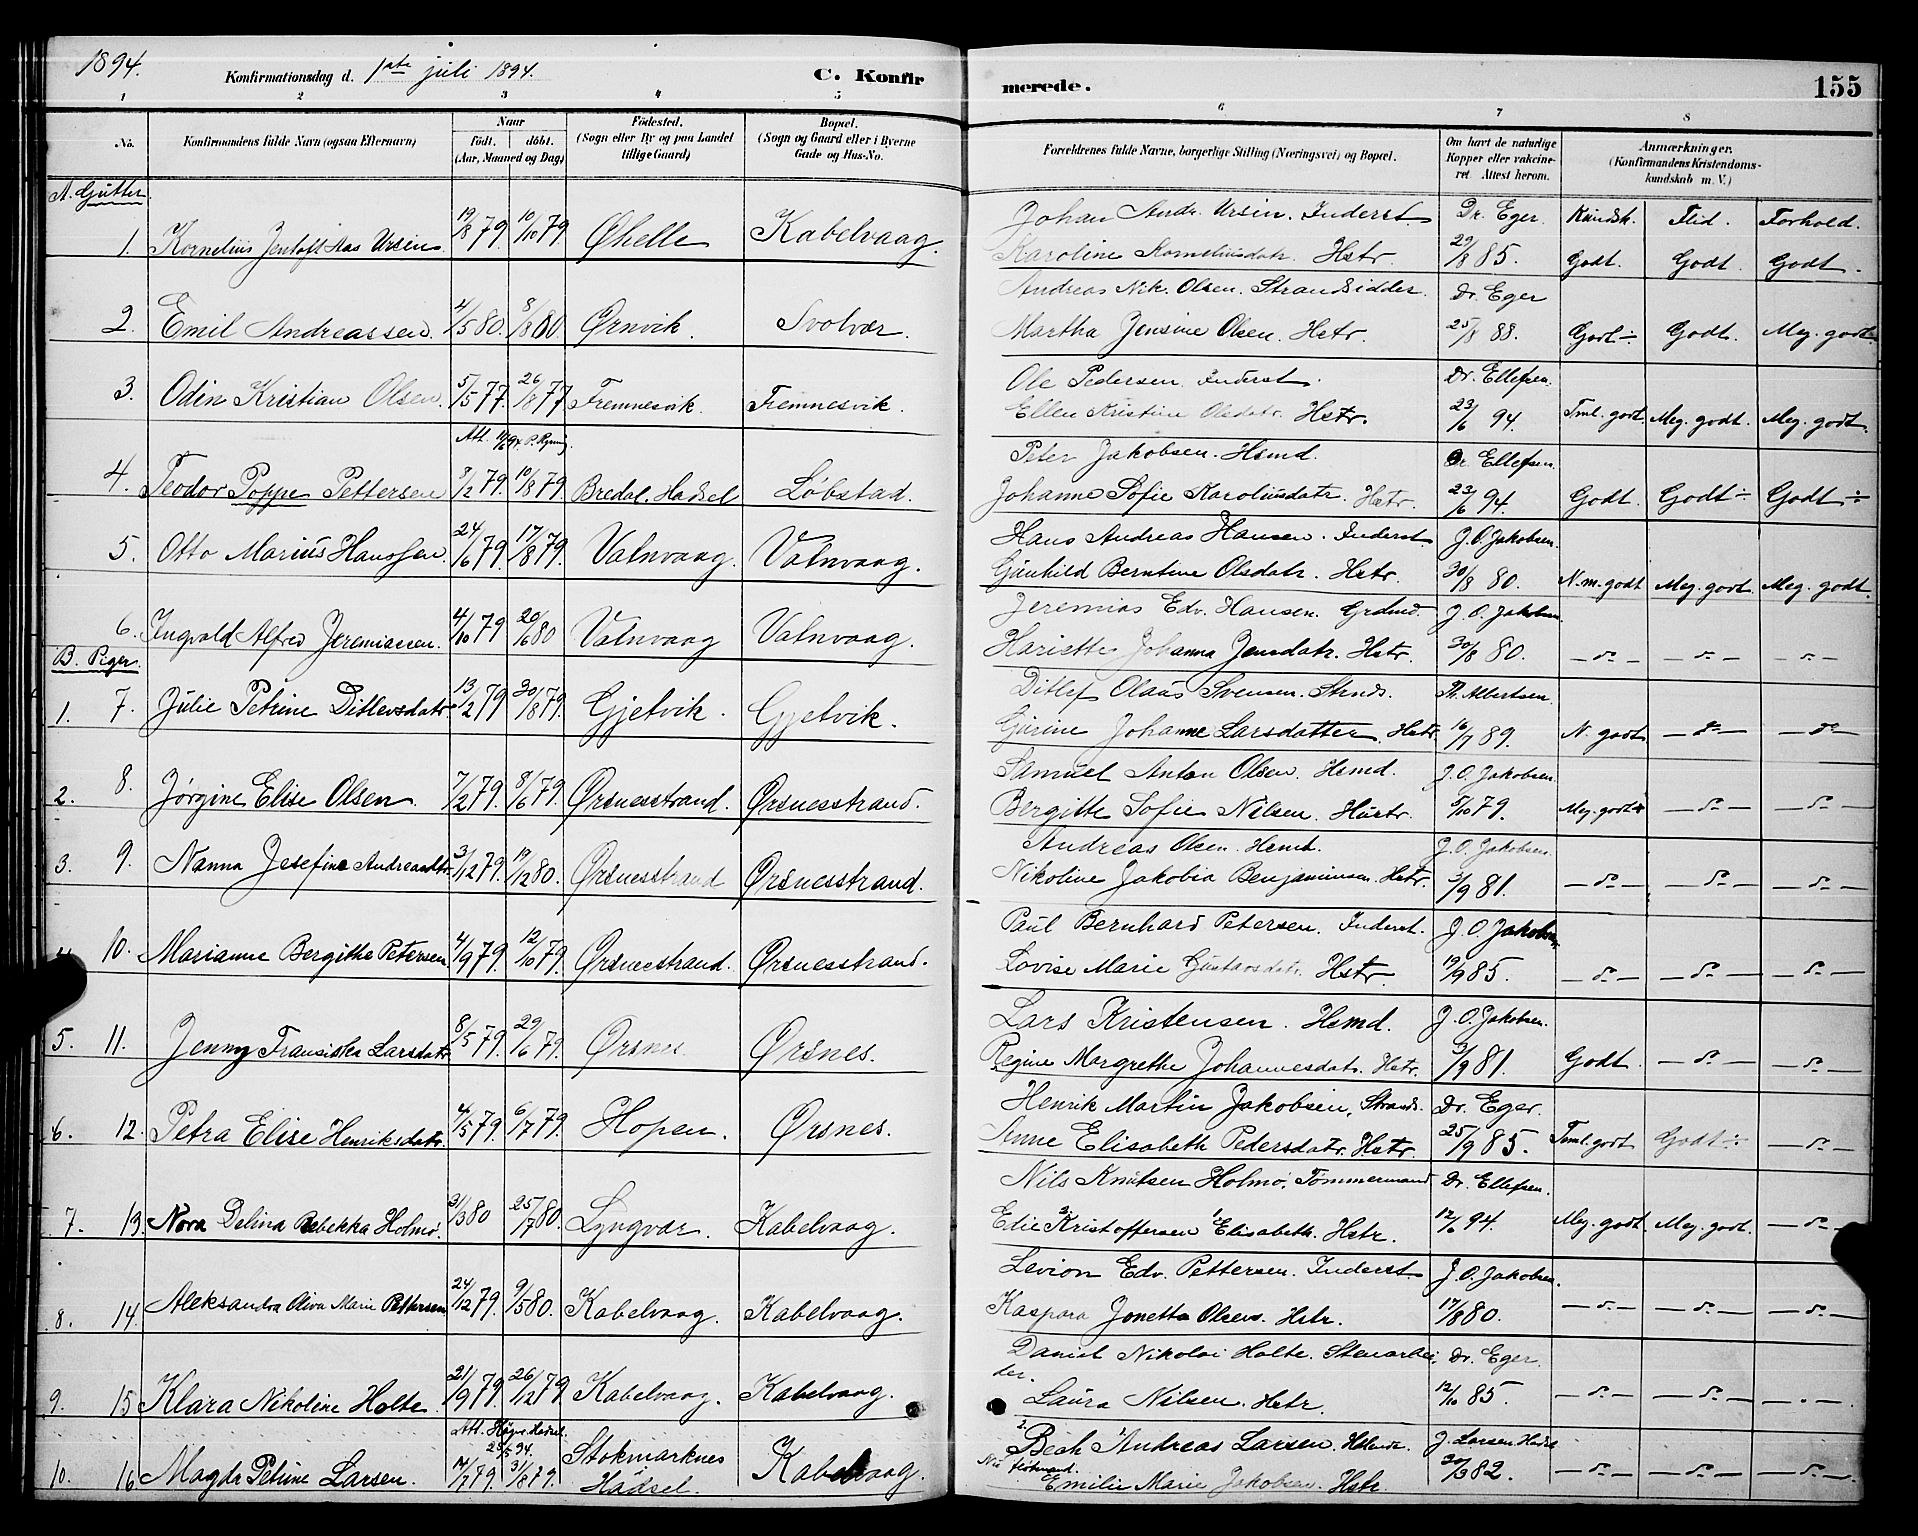 1894. Konfirmationsdag d. 1ste juli 1894. C. Konfirmerede. 155
1 2 3 4 5 6 7 8
No. Konfirmandens fulde Navn (ogsaa Efternavn) Naar født. døbt. (Aar, Maaned og Dag) Fødested. (Sogn eller By og paa Landet tillige Gaard) Bopæl. (Sogn og Gaard eller i Byerne Gade og Hus-No. Forældrenes fulde Navne, borgerlige Stilling (Næringsvei) og Bopæl. Om havt de naturlige Kopper eller vakcineret. Attest herom. Anmærkninger. (Konfirmandens Kristendomskundskab m. V.)
A. Gutter.
Johan Andr. Ursin. Inderst. Dr. Eger. Kundsk. Flid. Forhold.
1. Kornelius Jentoft Ursin 19/8 79 19/10 79 Øhelle Kabelvaag. Karoline Korneliusdatr. Hstr. 29/8 85. Godt. Godt. Godt.
Andreas Nik. Olsen. Strandsidder. Dr. Eger
2. Emil Andreassen. 4/5 80. 8/8 80. Ørnvik. Svolvær. Martha Jensine Olsen. Hstr. 25/8 88. Godt ÷ Godt. Meg. godt.
Ole Pedersen. Inderst. Dr. Ellefsen.
3. Odin Kristian Olsen. 5/5 77. 26/8 77 Fremnesvik. Fremnesvik. Ellen Kristine Olsdatr. Hstr. 23/6 94. Tml. godt. Meg. godt. Meg. godt.
Peter Jakobsen. Hsmd. Dr. Ellefsen.
4. Teodor Poppe Pettersen 8/2 79. 10/8 79. Bredal. Hadsel Løbstad. Johanne Sofie Karoliusdatr. Hstr. 23/6 94. Godt. Godt ÷ Godt ÷
Hans Andreas Hansen. Inderst. J. O. Jakobsen.
5. Otto Marius Hanssen. 24/6 79. 17/8 79. Valnvaag. Valnvaag. Gunhild Berntine Olsdatr. Hstr. 30/8 80. N. m. godt Meg. godt. Meg. godt.
Jeremias Edv. Hansen. Grdmd. J. O. Jakobsen
6. Ingvald Alfred Jeremiassen. 4/10 79 20/6 80 Valnvaag Valnvaag. Hariette Johanna Jensdatr. Hstr. 30/8 80. — d° — — d° — — d° —
B. Piger.
Ditlef Olaus Svensen. Strnds. Albertsen.
1. 7. Julie Petrine Ditlevsdatr. 13/2 79 30/8 79. Gjetvik. Gjetvik. Gurine Johanne Larsdatter. Hstr. 16/7 89. N. godt — d° — — d° —
Samuel Anton Olsen. Hsmd. J. O. Jakobsen.
2. 8. Jørgine Elise Olsen. 7/2 79. 8/6 79. Ørsnesstrand. Ørsnesstrand. Bergitte Sofie Nilsen. Hustr. 5/10 79. Meg. godt — d° — — d° —
Andreas Olsen. Hsmd. J. O. Jakobsen.
3. 9. Nanna Josefine Andreasdtr. 3/12 79. 19/12 80. Ørsnesstrand Ørsnesstrand. Nikoline Jakobia Benjaminsen. Hstr. 3/9 81. — d° — — d° — — d° —
Paul Bernhard Petersen. Inderst. J. O. Jakobsen
10. Marianne Bergithe Petersen 4/9 79. 12/10 79. Ørsnesstrand. Ørsnesstrand. Lovise Marie Gustavsdatr. Hstr. 19/9 85. — d° — — d° — — d° —
Lars Kristensen. Hsmd. J. O. Jakobsen.
5. 11. Jenny Fransiska Larsdatr. 8/5 79. 29/6 79. Ørsnes. Ørsnes. Regine Margrethe Johannesdatr. Hstr. 3/9 81. Godt. — d° — — d° —
Henrik Martin Jakobsen, Strands. Dr. Eger.
6. 12. Petra Elise Henriksdatr. 4/5 79. 6/7 79. Hopen. Ørsnes. Anne Elisabeth Pedersdatr. Hstr. 25/9 85. Tml. godt Godt ÷ — d° —
Nils Knutsen Holmø, Tømmermand Dr. Ellefsen.
7. 13. Nora Delina Rebekka Holmø. 31/3 80 25/7 80. Lyngvær. Kabelvaag. Edie Kristoffersen Elisabeth. Hstr. 12/6 94. Meg. godt. Meg. godt. — d° —
Levion Edv. Pettersen. Inderst J. O. Jakobsen.
8. 14. Aleksandra Oliva Marie Pettersen 24/12 79. 9/5 80. Kabelvaag. Kabelvaag. Kaspara Jonetta Olsen. Hstr. 17/8 80. — d° — — d° — — d° —
Daniel Nikolai Holte. Stenarbeider. Dr. Eger.
9. 15 Klara Nikoline Holte. 21/9 79. 26/12 79 Kabelvaag. Kabelvaag. Laura Nilsen. Hstr. 12/10 85. — d° — — d° — — d° —
Bech Andreas Larsen. J. Larsen
10. 16 Magda Petrine Larsen. 14/7 79. 31/8 79. Stokmarknes Hadsel. Kabelvaag. Emilie Marie Jakobsen. Hstr. 20/3 82. — d° — — d° — — d° —